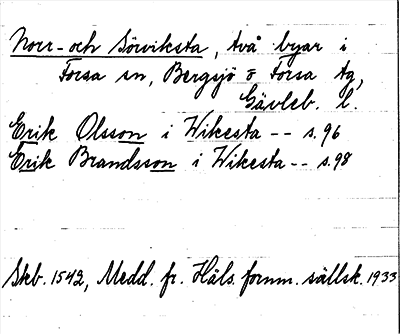 Norr- och Sörviksta, två byar i
Forsa sn, Bergsjö o Forsa tg,
Gävleb. l.
Erik Olsson i Wikesta -- s. 96
Erik Brandsson i Wikesta -- s. 98
Skb. 1542, Medd. fr. Häls. fornm. sällsk. 1933